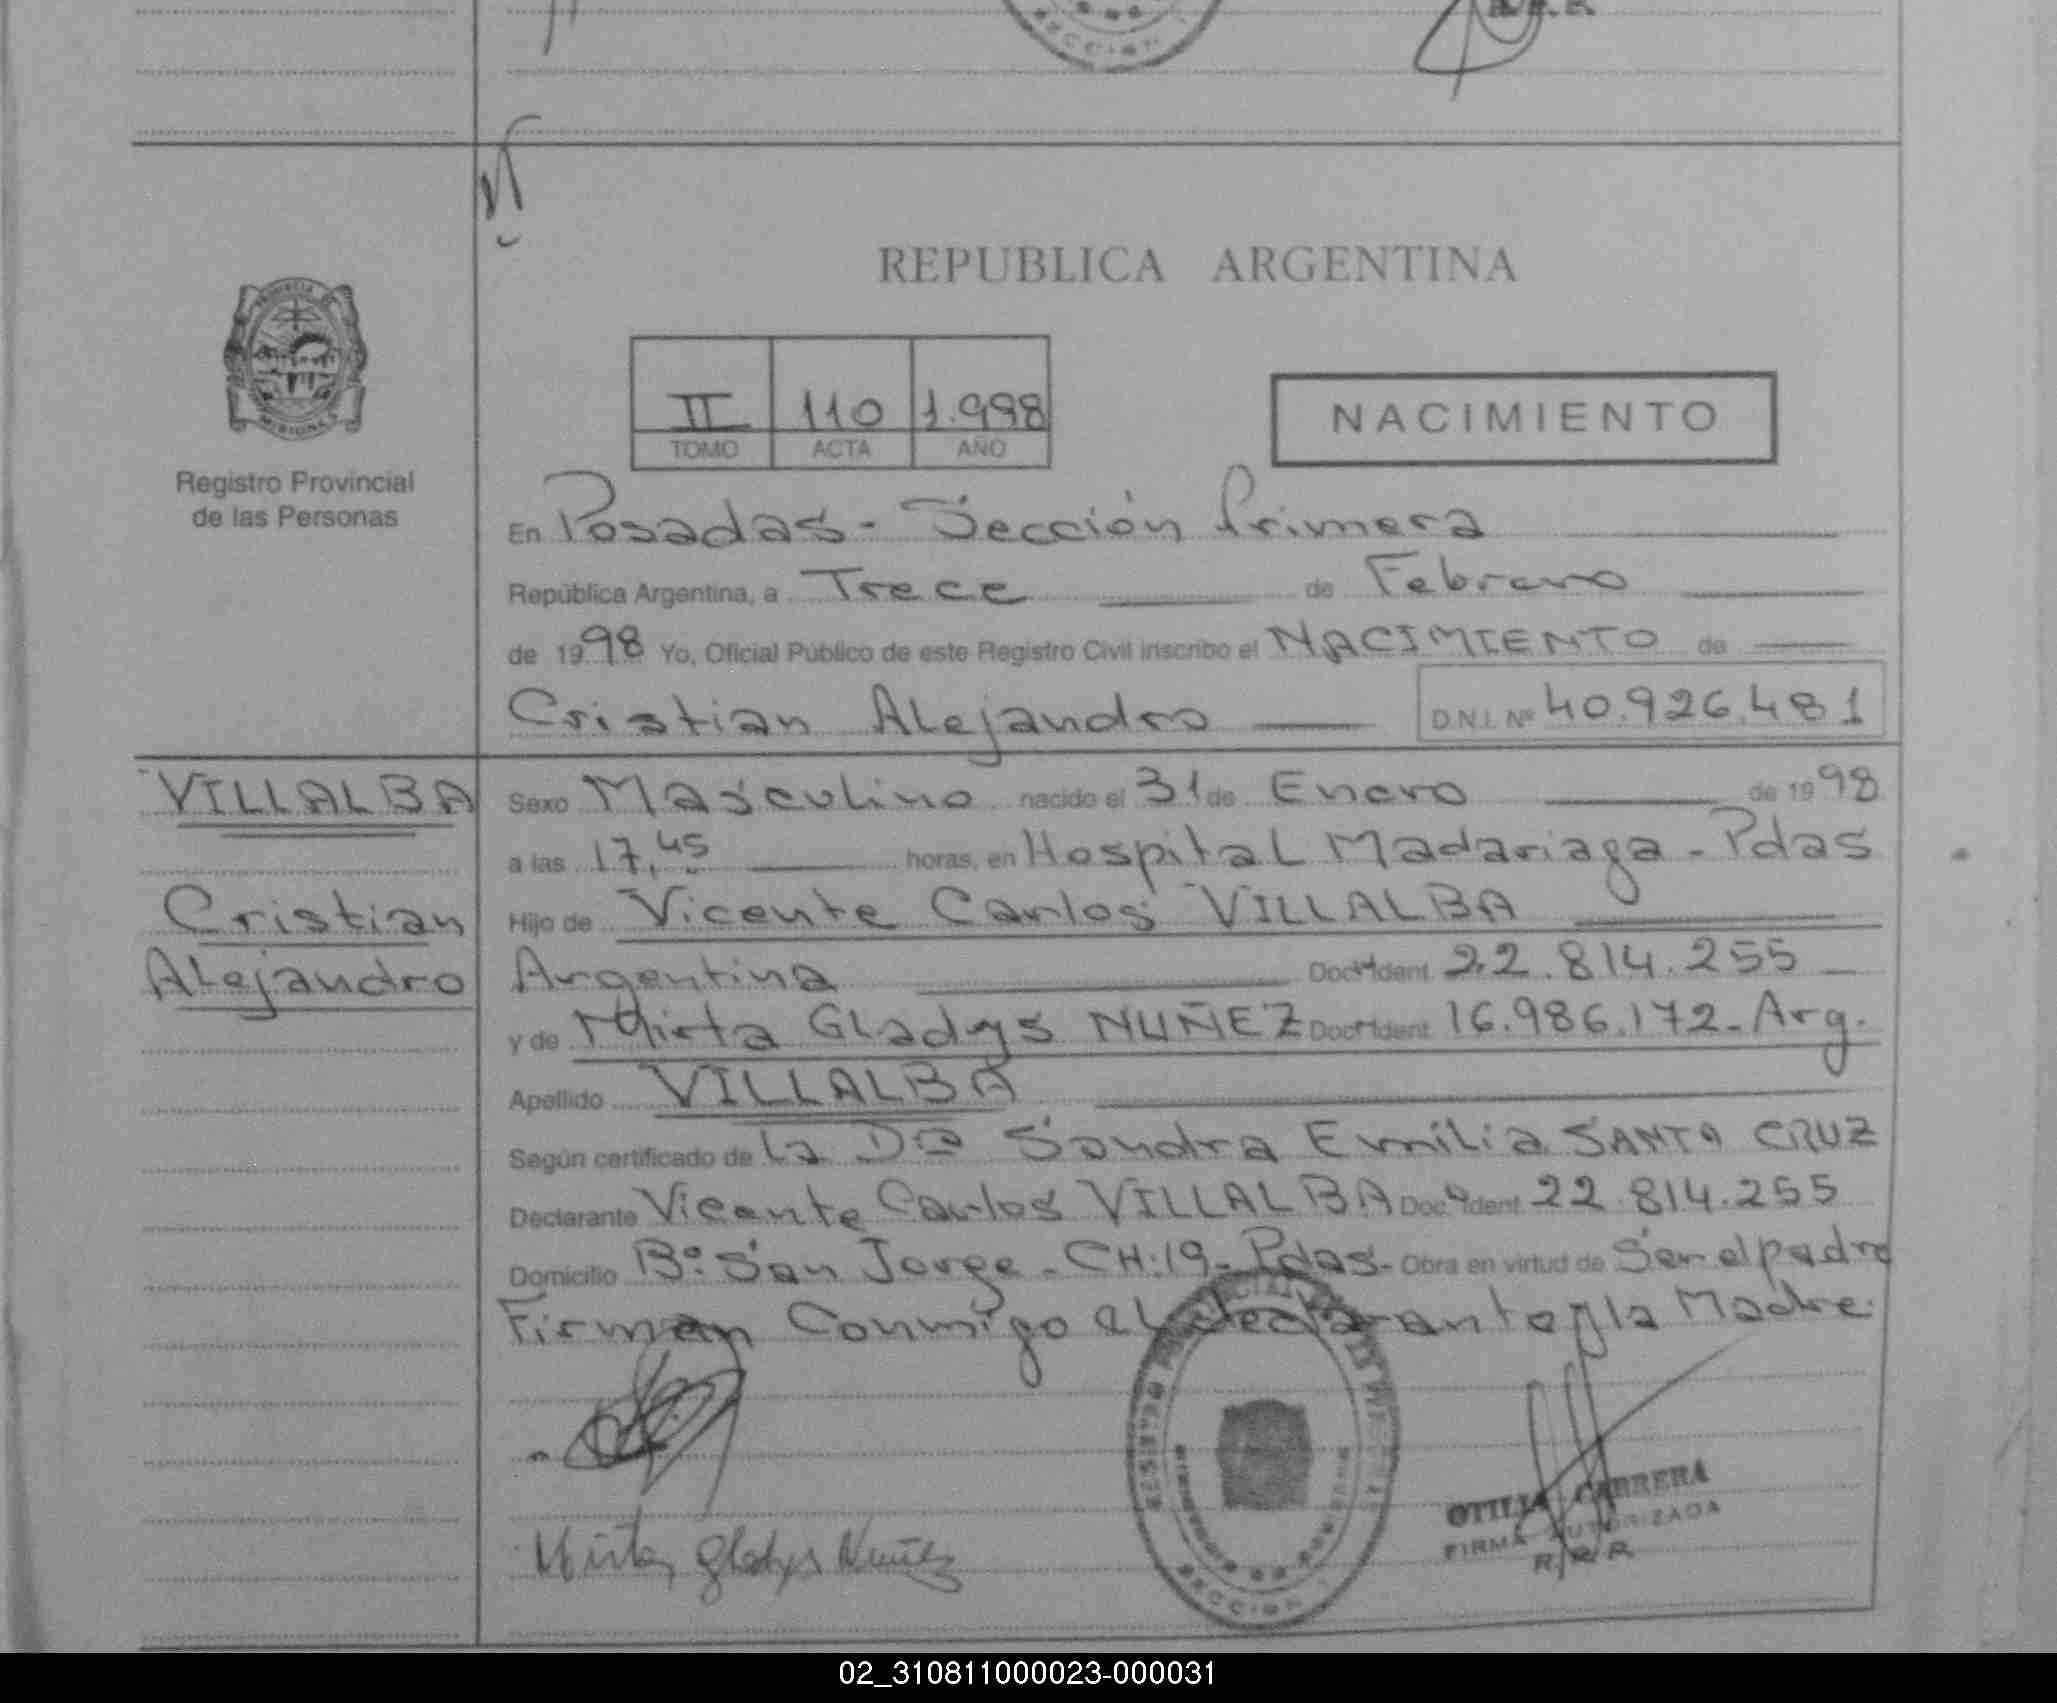 REPUBLICA ARGENTINA
II 110 1.998
TOMO ACTA AÑO
NACIMIENTO
Registro Provincial
de las Personas
En Posadas - Sección Primera
República Argentina, a Trece de Febrero
de 1998 Yo, Oficial Público de este Registro Civil inscribo el NACIMIENTO de
Cristian Alejandro D.N.I. Nº 40.926.481
VILLALBA
Cristian
Alejandro
Sexo Masculino nacido el 31 de Enero de 1998
a las 17,45 horas, en Hospital Madariaga - Pdas
Hijo de Vicente Carlos VILLALBA
Argentina Doc. Ident. 22.814.255
y de Mirta Gladys NUÑEZ Doc. Ident. 16.986.172 - Arg.
Apellido VILLALBA
Según certificado de la Dra Sandra Emilia SANTA CRUZ
Declarante Vicente Carlos VILLALBA Doc. Ident. 22.814.255
Domicilio Bº San Jorge - CH:19 - Pdas - Obra en virtud de Ser el padre
Firman Conmigo el declarante y la Madre.
Mirta Gladys Nuñez
SECCION
OTILIA CABRERA
FIRMA AUTORIZADA
R.P.P.
02_310811000023-000031